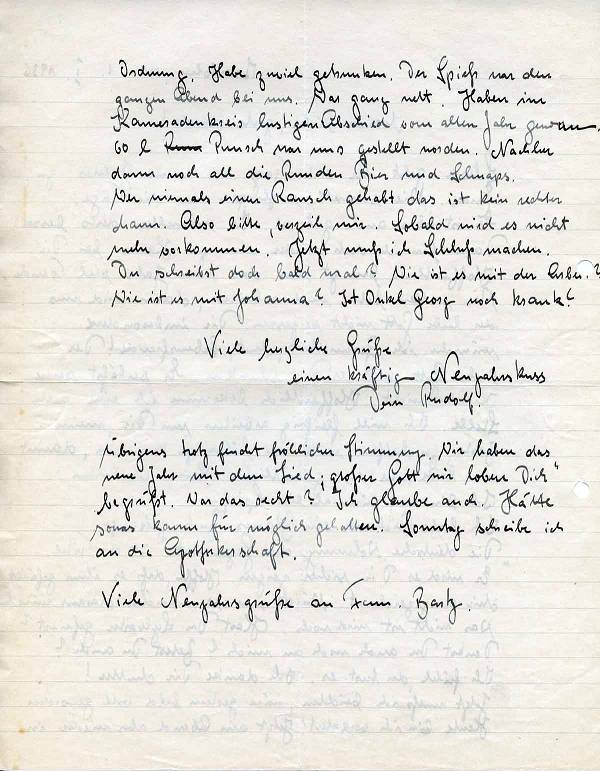 Ordnung. Habe zuviel getrunken. Der Spieß war den
ganzen Abend bei uns. War ganz nett. Haben im
Kameradenkreis lustigen Abschied vom alten Jahr genommen
60 l Punsch war uns gestellt worden. Nachher
dann noch all die Runden Bier und Schnaps.
Wer niemals einen Rausch gehabt das ist kein rechter
Mann. Also bitte verzeih mir. Sobald wird es nicht
mehr vorkommen. Jetzt muß ich Schluß machen.
Du schreibst doch bald mal? Wie ist es mit der Arbeit?
Wie ist es mit Johanna? Ist Onkel Georg noch krank?
Viele herzliche Grüße
einen kräftig Neujahrskuss
Dein Rudolf.
Übrigens trotz feucht fröhlicher Stimmung. Wir haben das
neue Jahr mit dem Lied „großer Gott wir loben Dich"
begrüßt. War das recht? Ich glaube auch. Hätte
sowas kaum für möglich gehalten. Sonntag schreibe ich
an die
Viele Neujahrsgrüße an Fam. Bartz.